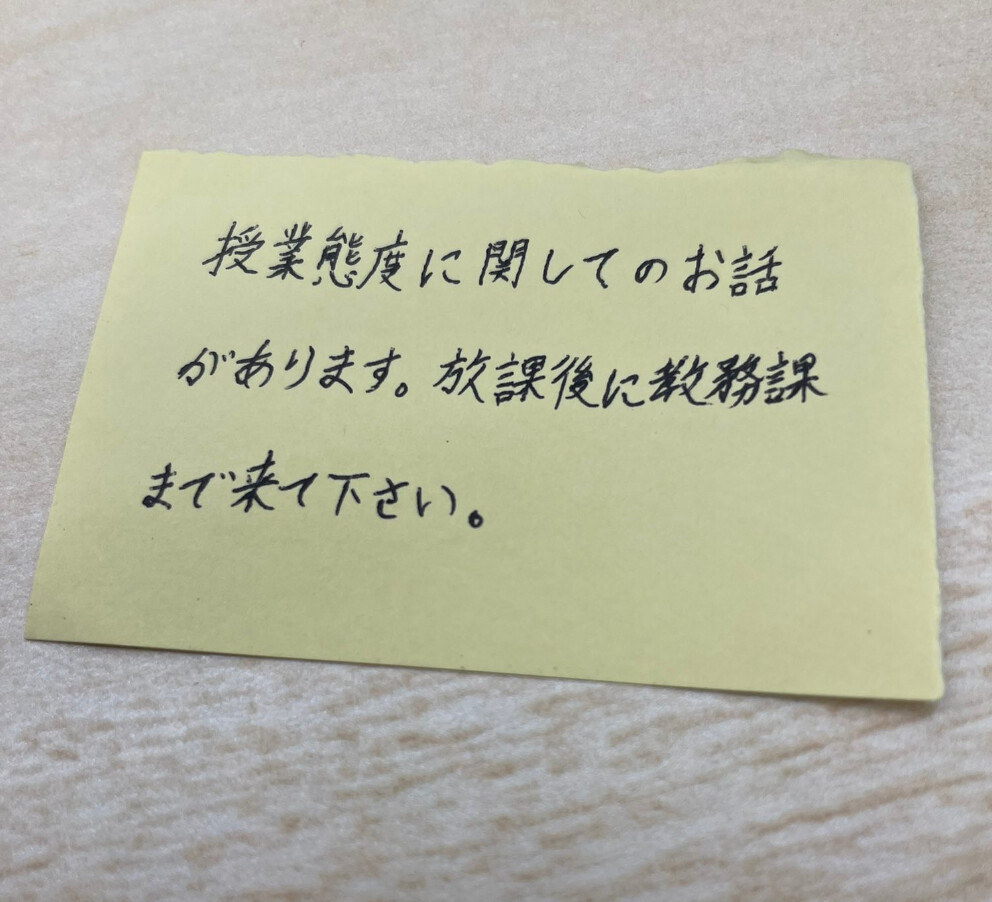 授業態度に関してのお話
があります。放課後に教務課
まで来て下さい。